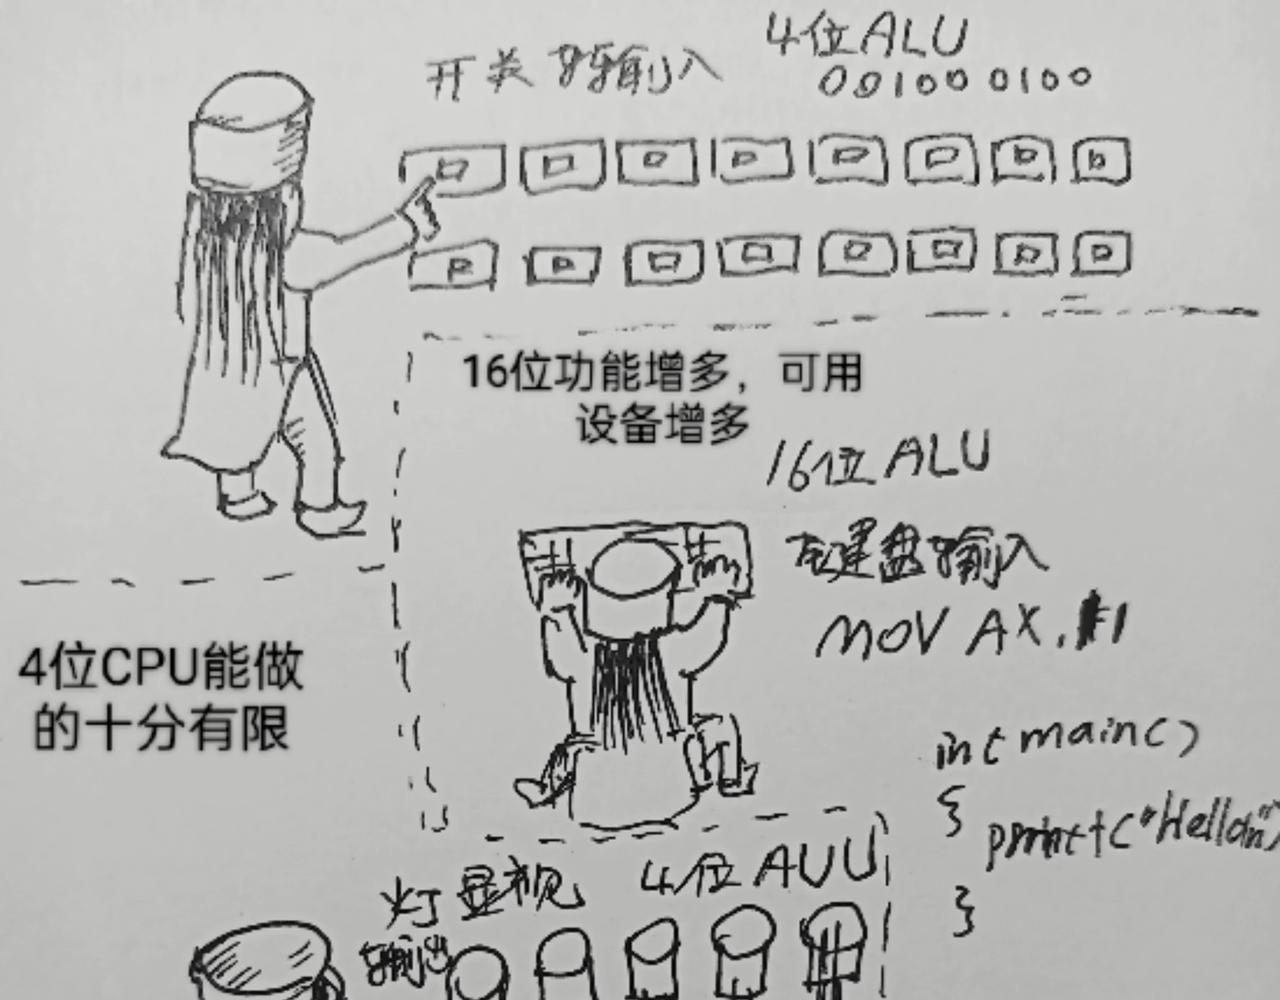 4位ALU
开关输入
001000100
16位功能增多，可用
设备增多
16位ALU
键盘输入
MOV AX,
4位CPU能做
的十分有限
int main()
{
printf("Hello\n")
}
灯显视 4位AUU
输出